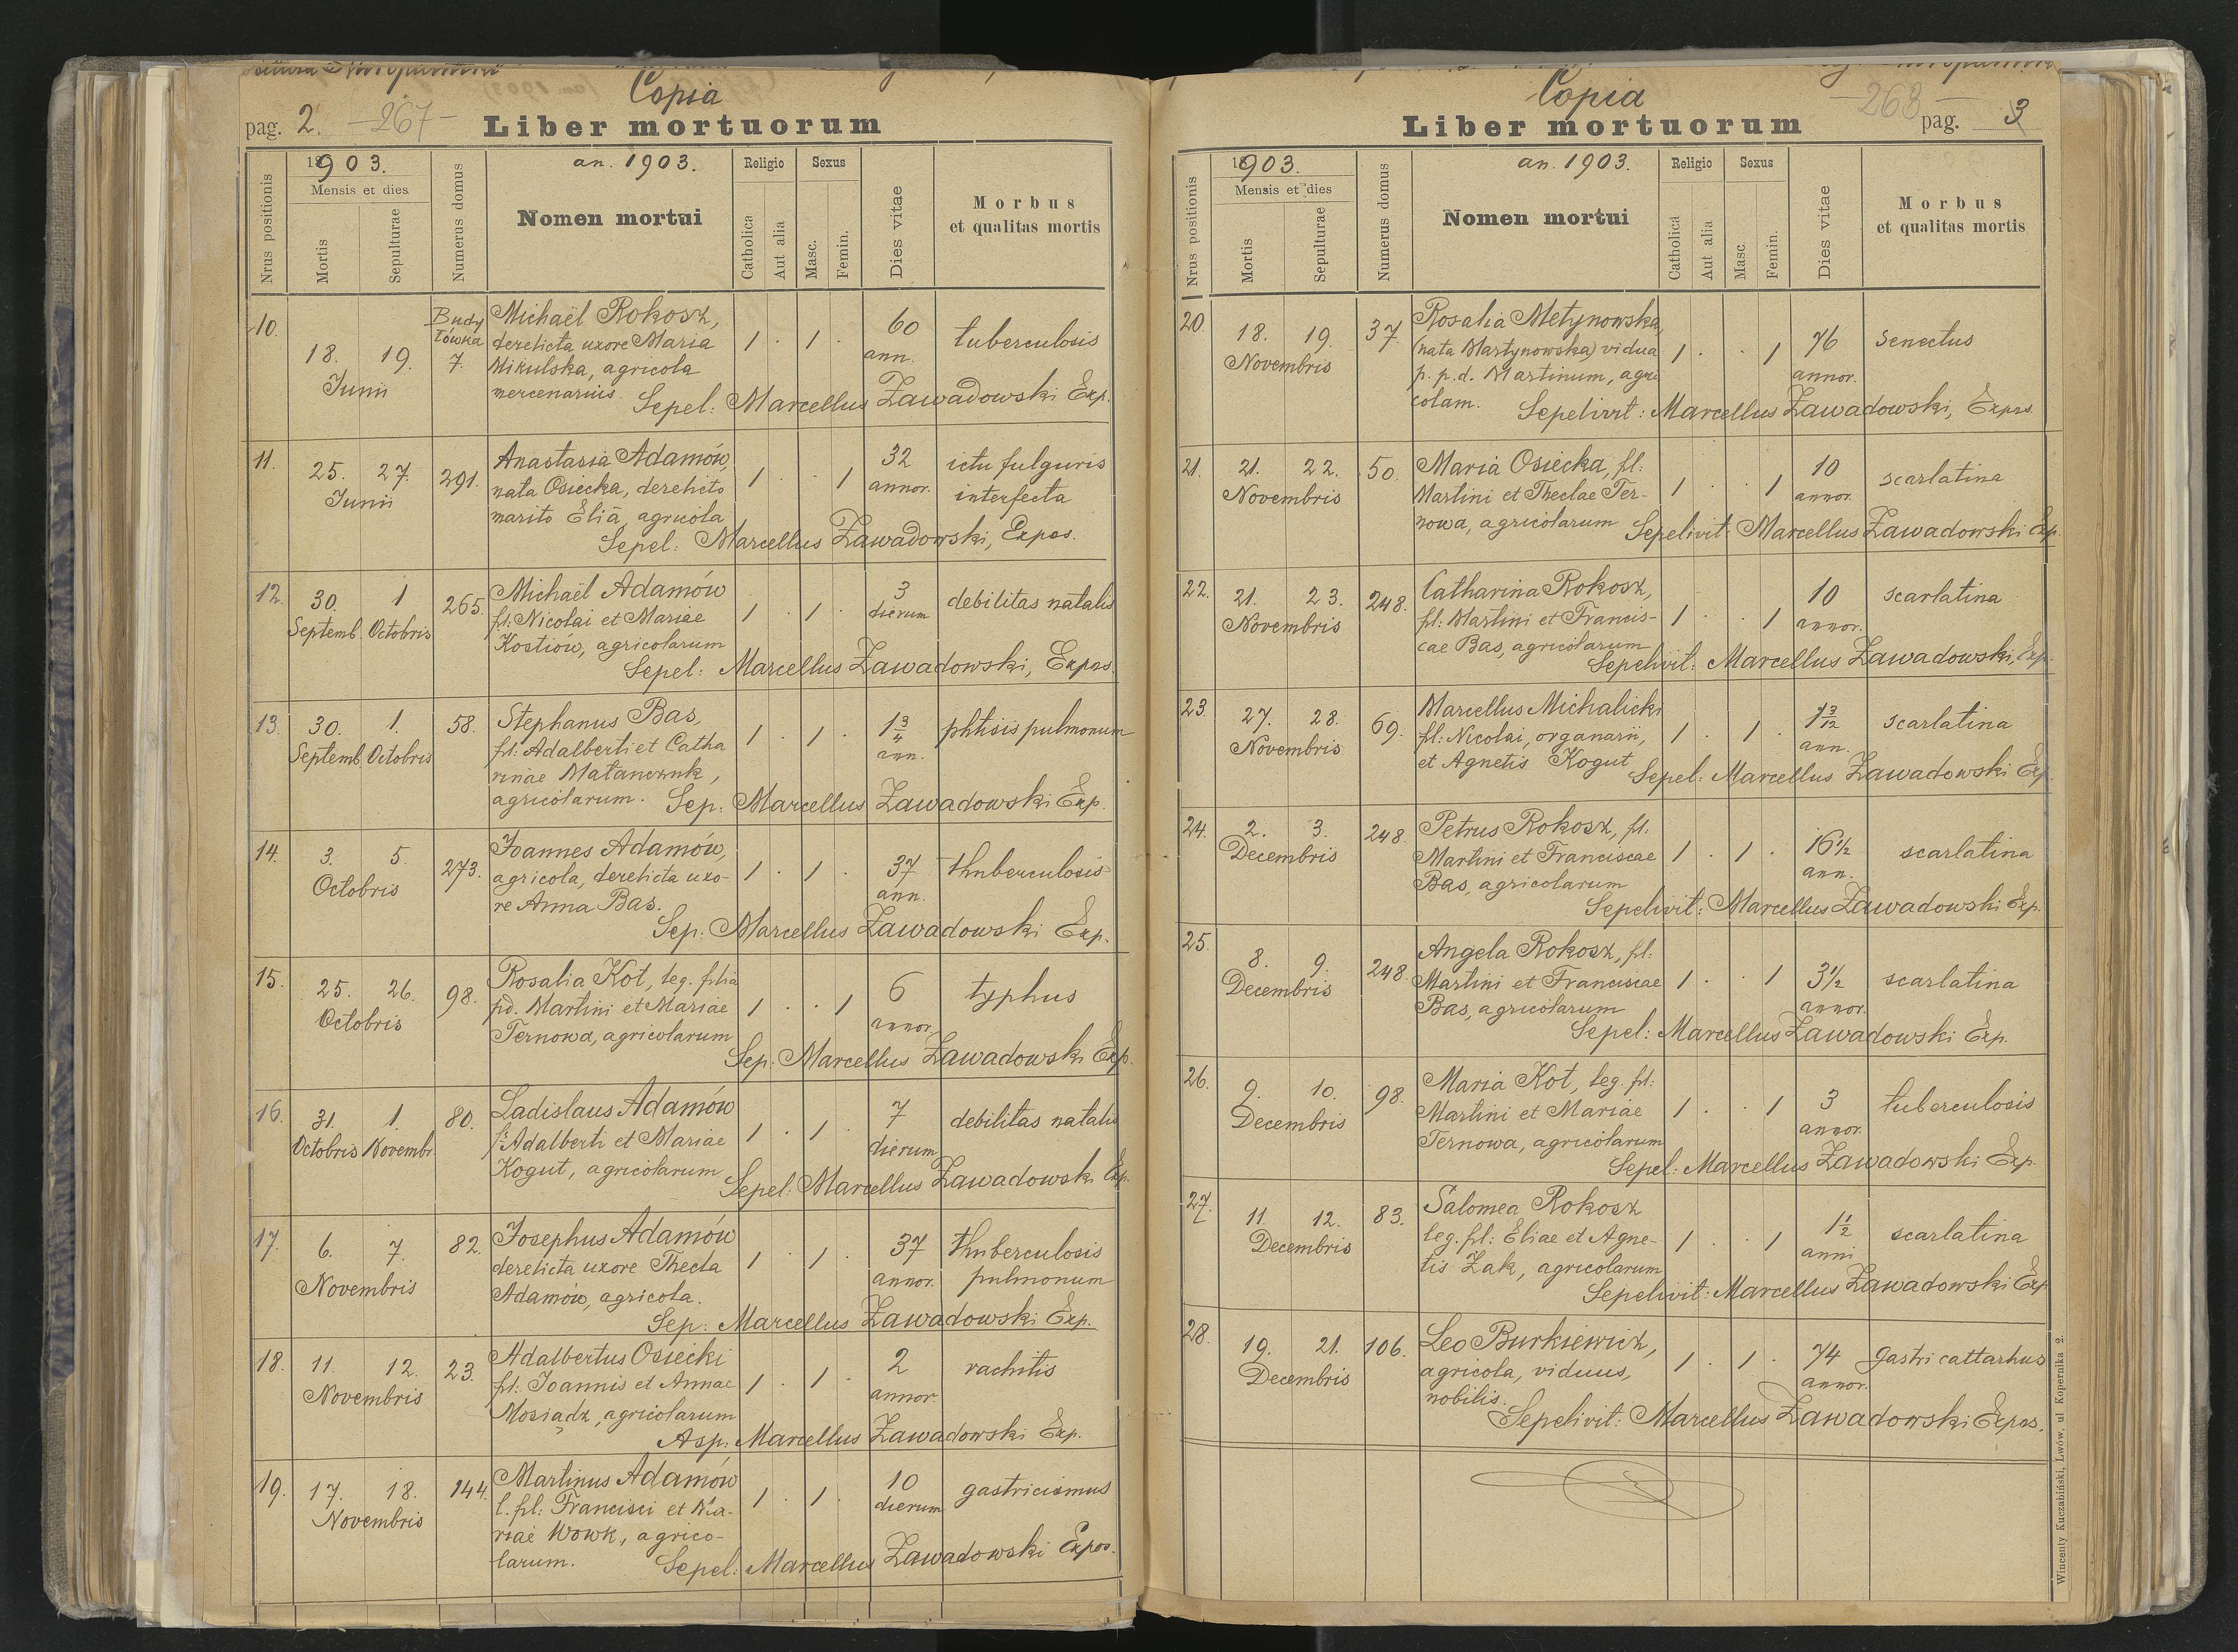 Copia
pag. 2. -267-
Liber mortuorum
1903.
an. 1903.
Religio
Sexus
Nrus positionis
Mensis et dies
Mortis
Sepulturae
Numerus domus
Nomen mortui
Catholica
Aut alia
Masc.
Femin.
Dies vitae
Morbus
et qualitas mortis
10. 18. 19. Junii
Budy
łówka
7.
Michaël Rokosz,
derelicta uxore Maria
Mikulska, agricola
mercenarius.
1 . 1 .
60
ann.
tuberculosis
Sepel: Marcellus Zawadowski Exp.
11. 25. 27. Junii
291.
Anastasia Adamów,
nata Osiecka, derelicto
marito Eliā, agricola
1 . . 1
32
annor.
ictu fulguris
interfecta
Sepel: Marcellus Zawadowski, Expos.
12. 30. Septemb. 1 Octobris
265.
Michaël Adamów
fil: Nicolai et Mariae
Kostiów, agricolarum
1 . 1 .
3
dierum
debilitas natalis
Sepel: Marcellus Zawadowski, Expos.
13. 30. Septemb. 1. Octobris
58.
Stephanus Bas,
fil: Adalberti et Catha
rinae Matanczuk,
agricolarum.
1 . 1 .
1 3/4
ann.
phtisis pulmonum
Sep: Marcellus Zawadowski Exp.
14. 3. 5. Octobris
273.
Joannes Adamów,
agricola, derelicta uxo-
re Anna Bas.
1 . 1 .
37
ann.
thuberculosis
Sep: Marcellus Zawadowski Exp.
15. 25. 26. Octobris
98.
Rosalia Kot, leg. filia
pd. Martini et Mariae
Ternowa, agricolarum
1 . . 1
6
annor.
typhus
Sep: Marcellus Zawadowski Exp.
16. 31. Octobris 1. Novembr.
80.
Ladislaus Adamów
f: Adalberti et Mariae
Kogut, agricolarum
1 . 1 .
7
dierum
debilitas natalis
Sepel: Marcellus Zawadowski Exp.
17. 6. 7. Novembris
82.
Josephus Adamów
derelicta uxore Thecla
Adamów, agricola.
1 . 1 .
37
annor.
thuberculosis
pulmonum
Sep: Marcellus Zawadowski Exp.
18. 11. 12. Novembris
23.
Adalbertus Osiecki
fil: Joannis et Annae
Mosiądz, agricolarum
1 . 1 .
2
annor.
rachitis
Asp: Marcellus Zawadowski Exp.
19. 17. 18. Novembris
144.
Martinus Adamów
l. fil: Francisci et Ma-
riae Wowk, agrico-
larum.
1 . 1 .
10
dierum
gastricismus
Sepel: Marcellus Zawadowski Expos.
Copia
Liber mortuorum
-268-
pag. 3
1903.
an. 1903.
Religio
Sexus
Nrus positionis
Mensis et dies
Mortis
Sepulturae
Numerus domus
Nomen mortui
Catholica
Aut alia
Masc.
Femin.
Dies vitae
Morbus
et qualitas mortis
20. 18. 19. Novembris
37.
Rosalia Metynowska,
(nata Martynowska) vidua
p. p. d. Martinum, agri
colam.
1 . . 1
76
annor.
senectus
Sepelivit: Marcellus Zawadowski, Expos.
21. 21. 22. Novembris
50.
Maria Osiecka, fil:
Martini et Theclae Ter-
nowa, agricolarum
1 . . 1
10
annor.
scarlatina
Sepelivit: Marcellus Zawadowski Exp.
22. 21. 23. Novembris
248.
Catharina Rokosz,
fil: Martini et Francis-
cae Bas, agricolarum
1 . . 1
10
annor.
scarlatina
Sepelivit: Marcellus Zawadowski, Exp.
23. 27. 28. Novembris
69.
Marcellus Michalicki
fil: Nicolai, organarii,
et Agnetis Kogut
1 . 1 .
1 3/12
ann.
scarlatina
Sepel: Marcellus Zawadowski Exp.
24. 2. 3. Decembris
248.
Petrus Rokosz, fil:
Martini et Franciscae
Bas, agricolarum
1 . 1 .
16 1/2
ann.
scarlatina
Sepelivit: Marcellus Zawadowski Exp.
25. 8. 9. Decembris
248.
Angela Rokosz, fil:
Martini et Franciscae
Bas, agricolarum
1 . . 1
3 1/2
annor.
scarlatina
Sepel: Marcellus Zawadowski Exp.
26. 9. 10. Decembris
98.
Maria Kot, leg. fil:
Martini et Mariae
Ternowa, agricolarum
1 . . 1
3
annor.
tuberculosis
Sepel: Marcellus Zawadowski Exp.
27. 11. 12. Decembris
83.
Salomea Rokosz
leg. fil: Eliae et Agne-
tis Zak, agricolarum
1 . . 1
1 1/2
anni
scarlatina
Sepelivit: Marcellus Zawadowski Exp
28. 19. 21. Decembris
106.
Leo Burkiewicz,
agricola, viduus,
nobilis.
1 . 1 .
74
annor.
gastri cattarhus
Sepelivit: Marcellus Zawadowski Expos.
Wincenty Kuczabiński, Lwów, ul Kopernika 2.